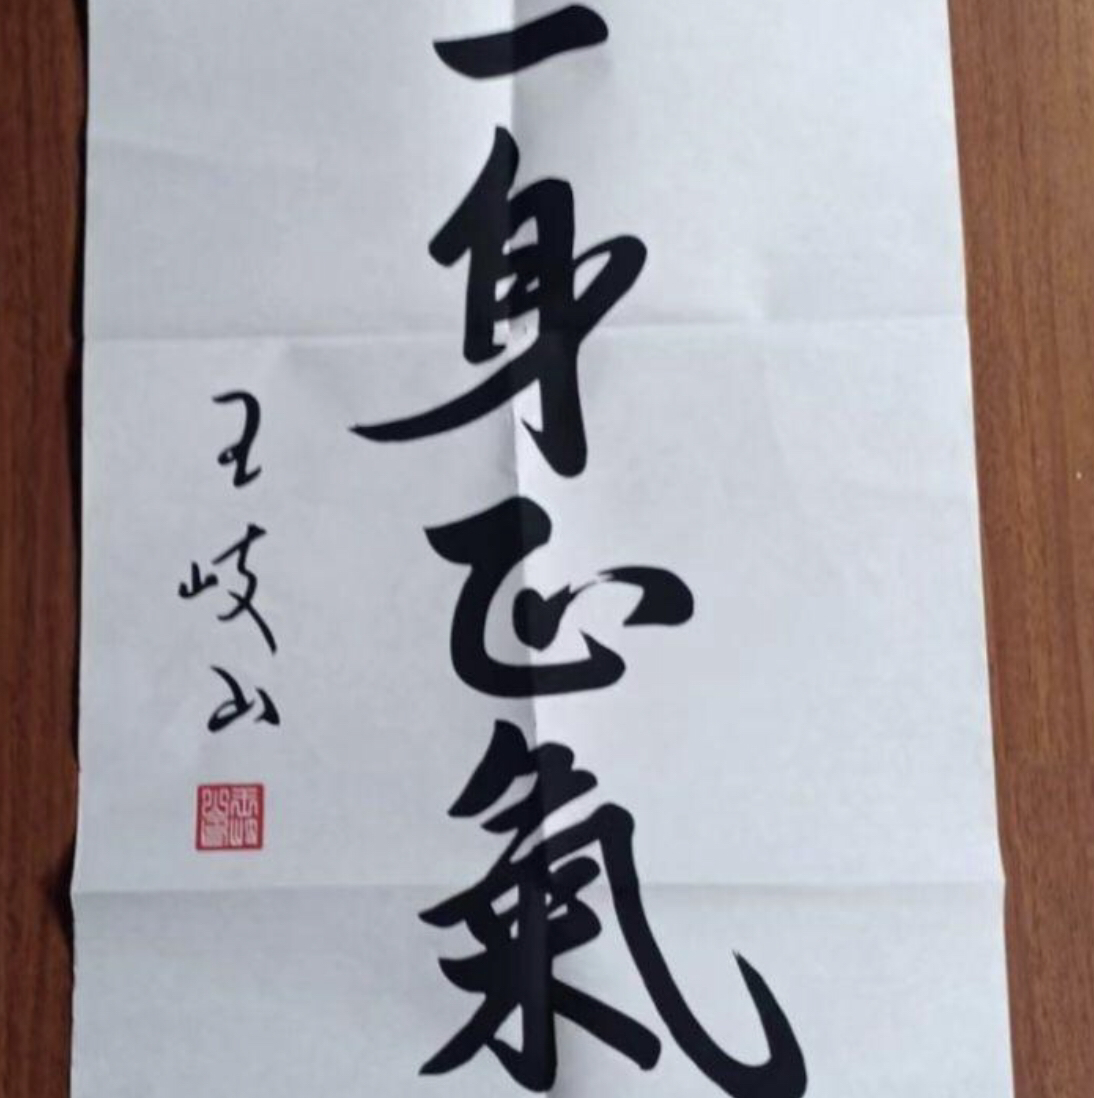 一身正氣
王岐山